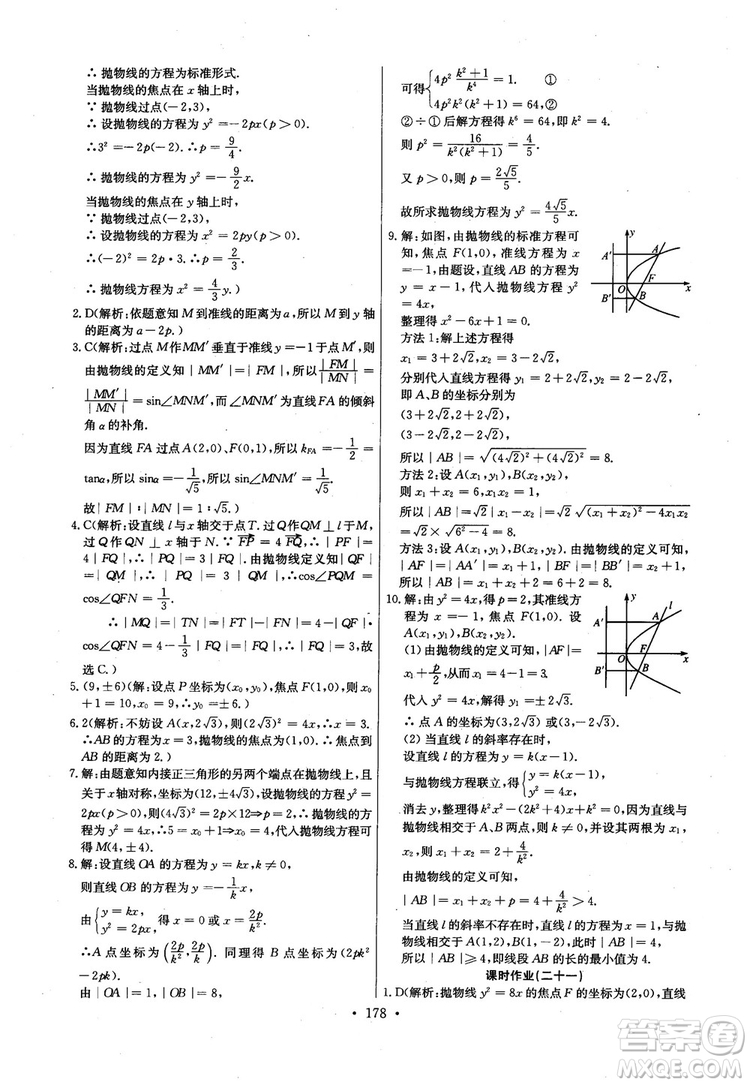 ∴ 抛物线的方程为标准形式.
当抛物线的焦点在 x 轴上时,
∵ 抛物线过点(-2,3),
∴ 设抛物线的方程为 y²=-2px(p>0).
∴3²=-2p(-2).∴p=9/4.
∴ 抛物线的方程为 y²=-9/2 x.
当抛物线的焦点在 y 轴上时,
∵ 抛物线过点(-2,3),
∴ 设抛物线的方程为 x²=2py(p>0).
∴(-2)²=2p·3.∴p=2/3.
∴抛物线的方程为 x²=4/3 y.)
2. D(解析:依题意知 M 到准线的距离为 a,所以 M 到 y 轴
的距离为 a-2p.)
3. C(解析:过点 M 作 MM′垂直于准线 y=-1 于点 M′,则
由抛物线的定义知|MM′|=|FM|,所以|FM|/|MN|=
|MM′|/|MN|=sin∠MNM′,而∠MNM′为直线 FA 的倾斜
角 α 的补角.
因为直线 FA 过点 A(2,0)、F(0,1),所以 k_FA=-1/2=
tanα,所以 sinα=1/√5,所以 sin∠MNM′=1/√5.
故|FM|∶|MN|=1∶√5.)
4. C(解析:设直线 l 与 x 轴交于点 T. 过 Q 作 QM⊥l 于 M,
过 Q 作 QN⊥x 轴于 N. ∵FP=4FQ,∴|PF|=
4|FQ|,∴|PQ|=3|FQ|.由抛物线定义知|QF|
=|QM|,∴|PQ|=3|QM|,∴cos∠PQM=
cos∠QFN=1/3.
∴|MQ|=|TN|=|FT|-|FN|=4-|QF|·
cos∠QFN=4-1/3|QF|=|QF|,∴|QF|=3,故
选 C.)
5. (9,±6)(解:设点 P 坐标为(x₀,y₀),焦点 F(1,0),则 x₀
+1=10, x₀=9,∴y₀=±6.)
6. 2(解析:不妨设 A(x,2√3),则(2√3)²=4x,∴x=3.
∴AB 的方程为 x=3,抛物线的焦点为(1,0).∴焦点到
AB 的距离为 2.)
7. 解:由题意知内接正三角形的另两个端点在抛物线上,且
关于 x 轴对称,坐标为(12,±4√3),设抛物线的方程为 y²=
2px(p>0),所以(4√3)²=2p×12⇒p=2,∴抛物线的
方程为 y²=4x,∴5=x₀+1⇒x₀=4,代入抛物线方程可
得 M(4,±4).
8. 解:设直线 OA 的方程为 y=kx,k≠0,
则直线 OB 的方程为 y=-1/k x,
由{y=kx, y²=2px,得 x=0 或 x=2p/k².
∴A 点坐标为(2p/k²,2p/k).同理得 B 点坐标为(2pk²
,-2pk).
由|OA|=1,|OB|=8,
可得{4p²(k²+1)/k⁴=1. ①
4p²k²(k²+1)=64, ②
②÷①后解方程得 k⁶=64,即 k²=4.
则 p²=16/(k²(k²+1))=4/5.
又 p>0,则 p=2√5/5.
故所求抛物线方程为 y²=4√5/5 x.
9. 解:如图,由抛物线的标准方程可
知,焦点 F(1,0),准线方程为 x=
-1,由题设,直线 AB 的方程为 y
=x-1,代入抛物线方程 y²
=4x,
整理得 x²-6x+1=0.
方法 1:解上述方程得
x₁=3+2√2,x₂=3-2√2,
分别代入直线方程得 y₁=2+2√2,y₂=2-2√2.
即 A、B 的坐标分别为
(3+2√2,2+2√2),
(3-2√2,2-2√2).
所以|AB|=√((4√2)²+(4√2)²)=8.
方法 2:设 A(x₁,y₁)、B(x₂,y₂),则
x₁+x₂=6,x₁x₂=1,
所以|AB|=√2|x₁-x₂|=√2 √((x₁+x₂)²-4x₁x₂)
=√2×√(6²-4)=8.
方法 3:设 A(x₁,y₁),B(x₂,y₂).由抛物线的定义可知,
|AF|=|AA′|=x₁+1,|BF|=|BB′|=x₂+1,
所以|AB|=x₁+x₂+2=6+2=8.
10. 解:由 y²=4x,得 p=2,其准线方
程为 x=-1,焦点 F(1,0).设
A(x₁,y₁),B(x₂,y₂).
(1) 由抛物线的定义可知,|AF|=
x₁+p/2,从而 x₁=4-1=3.
代入 y²=4x,得 y=±2√3.
∴ 点 A 的坐标为(3,2√3)或(3,-2√3).
(2) 当直线 l 的斜率存在时,
设直线 l 的方程为 y=k(x-1).
与抛物线方程联立,得{y=k(x-1), y²=4x,
消去 y,整理得 k²x²-(2k²+4)x+k²=0,因为直线与
抛物线相交于 A、B 两点,则 k≠0,并设其两根为 x₁,
x₂,则 x₁+x₂=2+4/k².
由抛物线的定义可知,
|AB|=x₁+x₂+p=4+4/k²>4.
当直线 l 的斜率不存在时,直线 l 的方程为 x=1,与抛
物线相交于 A(1,2),B(1,-2),此时|AB|=4,
所以|AB|≥4,即线段 AB 的长的最小值为 4.
课时作业(二十一)
1. D(解析:抛物线 y²=8x 的焦点 F 的坐标为(2,0),直线
y
A′
A
O
F
B′
B
x
y
l
A
O
F
B
x
• 178 •
答案圈
MXQE.COM